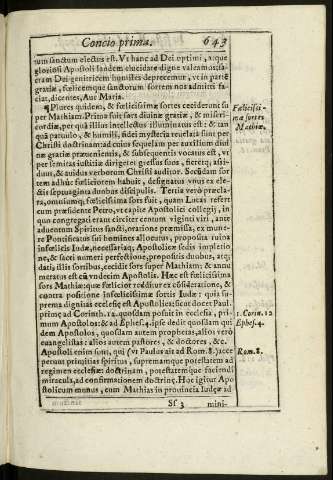 Concio prima. 643
tum sanctum electus est. Vt hanc ad Dei optimi, atque
gloriosi Apostoli laudem elucidare digne valeamus, sa-
cram Dei genitricem humiles deprecemur, vt in partē
gratiæ, fœlicemque sanctorum sortem nos admitti fa-
ciat, dicentes, Aue Maria.
¶ Plures quidem, & fœlicissimæ sortes ceciderunt su
per Mathiam. Prima fuit sors diuinæ gratiæ, & miseri-
cordiæ, per quā illius intellectus illuminatus est: & tan
quā paruulo, & humili, fidei mysteria reuelata sunt per
Christi doctrinam: ad cuius sequelam per auxilium diui
næ gratiæ præuenientis, & subsequentis vocatus est, vt
per semitas iustitiæ dirigeret gressus suos, fieretq; assi-
duus, & auidus verborum Christi auditor. Secūdam for
tem adhuc fœliciorem habuit, designatus vnus ex ele-
ctis septuaginta duobus discipulis. Tertia verò præcla-
ra, omniumq; fœlicissima sors fuit, quam Lucas refert
cum præsidente Petro, vt capite Apostolici collegij, in
quo congregati erant circiter centum viginti viri, ante
aduentum Spiritus sancti, oratione præmissa, ex mune-
re Pontificatus sui homines allocutus, proposita ruina
infœlicis Iudæ, necessariaq; Apostolicæ sedis impletio
ne, & sacri numeri perfectione, propositis duobus, atq;
datis illis sortibus, cecidit sors super Mathiam; & annu
meratus est cū vndecim Apostolis. Hæc est fœlicissima
sors Mathiæ: quæ fœlicior redditur ex cōsideratione, &
contra positione infœlicissimæ sortis Iudæ: quia su-
prema dignitas ecclesię est Apostolica: sicut docet Paul.
princ; ad Corinth. 12. quosdam posuit in ecclesia, pri-
mum Apostolos: & ad Ephes. 4. ipse dedit quosdam qui
dem Apostolos, quosdam autem prophetas, alios verò
euangelistas: alios autem pastores, & doctores, &c.
Apostoli enim sunt, qui (vt Paulus ait ad Rom. 8.) acce
perunt primitias spiritus, supremamque potestatem ad
regimen ecclesiæ: doctrinam, potestatemque faciendi
miracula, ad confirmationem doctrinę. Hoc igitur Apo
stolicum munus, cum Mathias in prouincia Iudææ ad
Sf 3 mini-
Fœlicissi-
mæ sortes
Mathiæ.
1. Corin. 12
Ephes. 4.
Rom. 8.